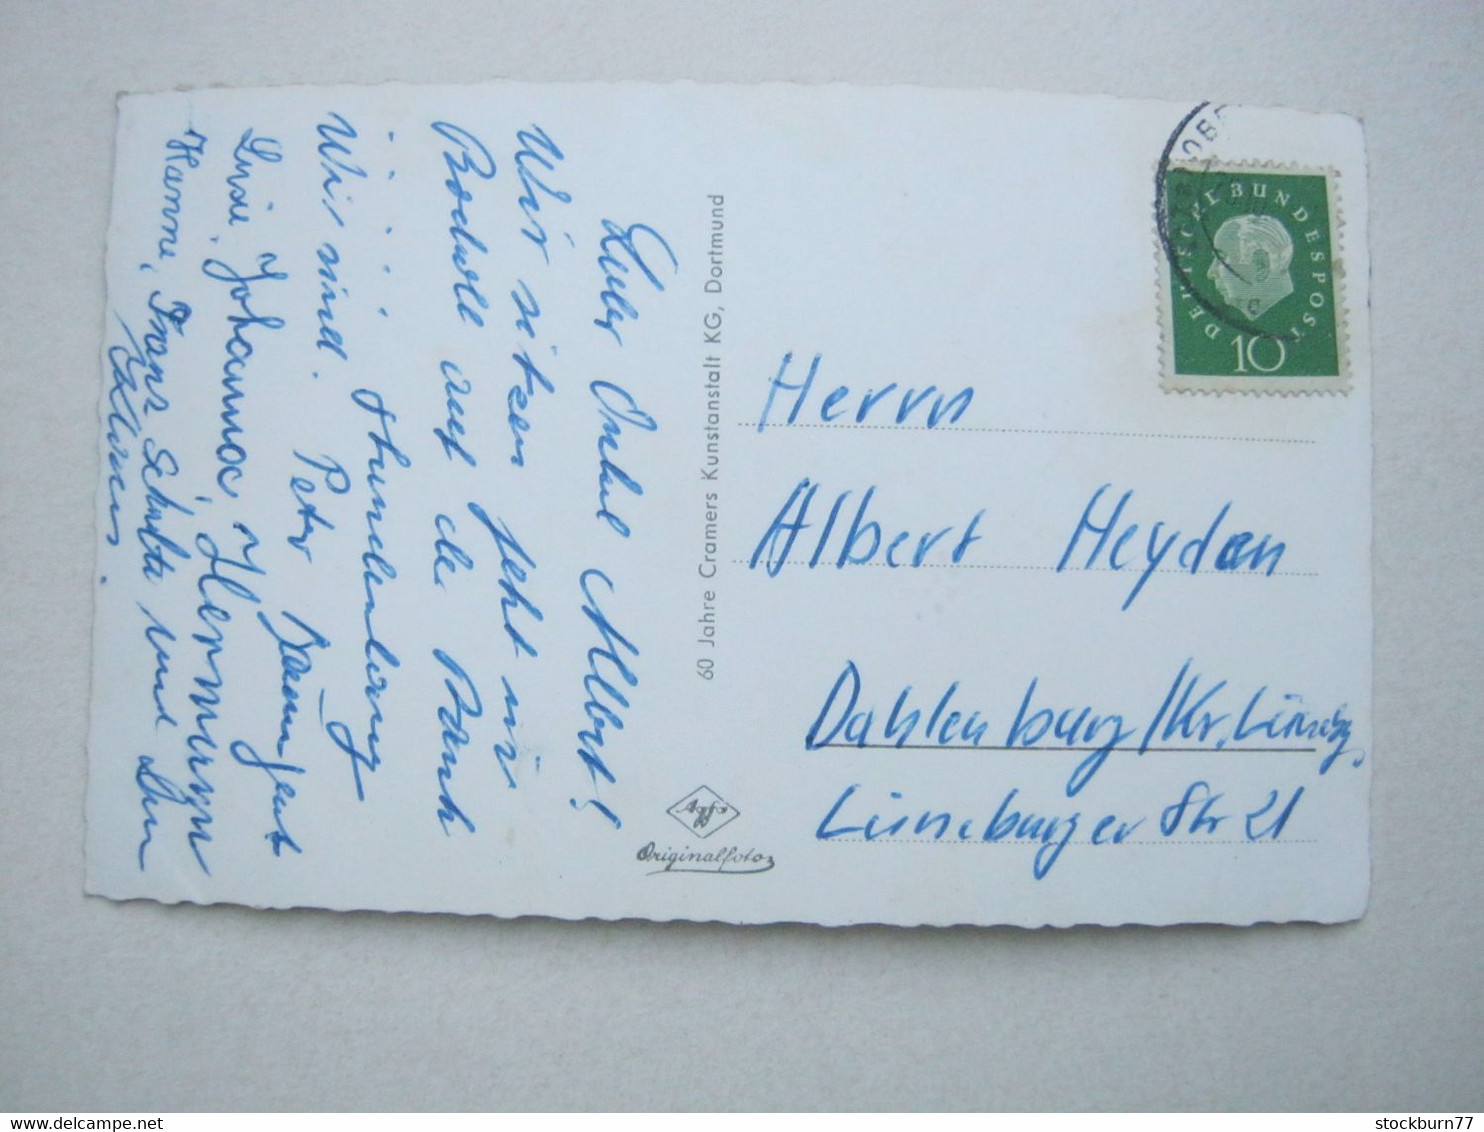 Lieber Onkel Albert!
Wir sitzen jetzt in
Bodwell auf de Bank
. . . . Hundenburg
Wir sind. Peter Baumgart
Luise, Johannos, Hermann
Hanne, Franz Schulte und
60 Jahre Cramers Kunstanstalt KG, Dortmund
Agfa
Originalfoto
DEUTSCHE BUNDESPOST
10
Herrn
Albert Heyden
Dahlenburg/Kr. Lünebg.
Lüneburger Str 21
stockburn77